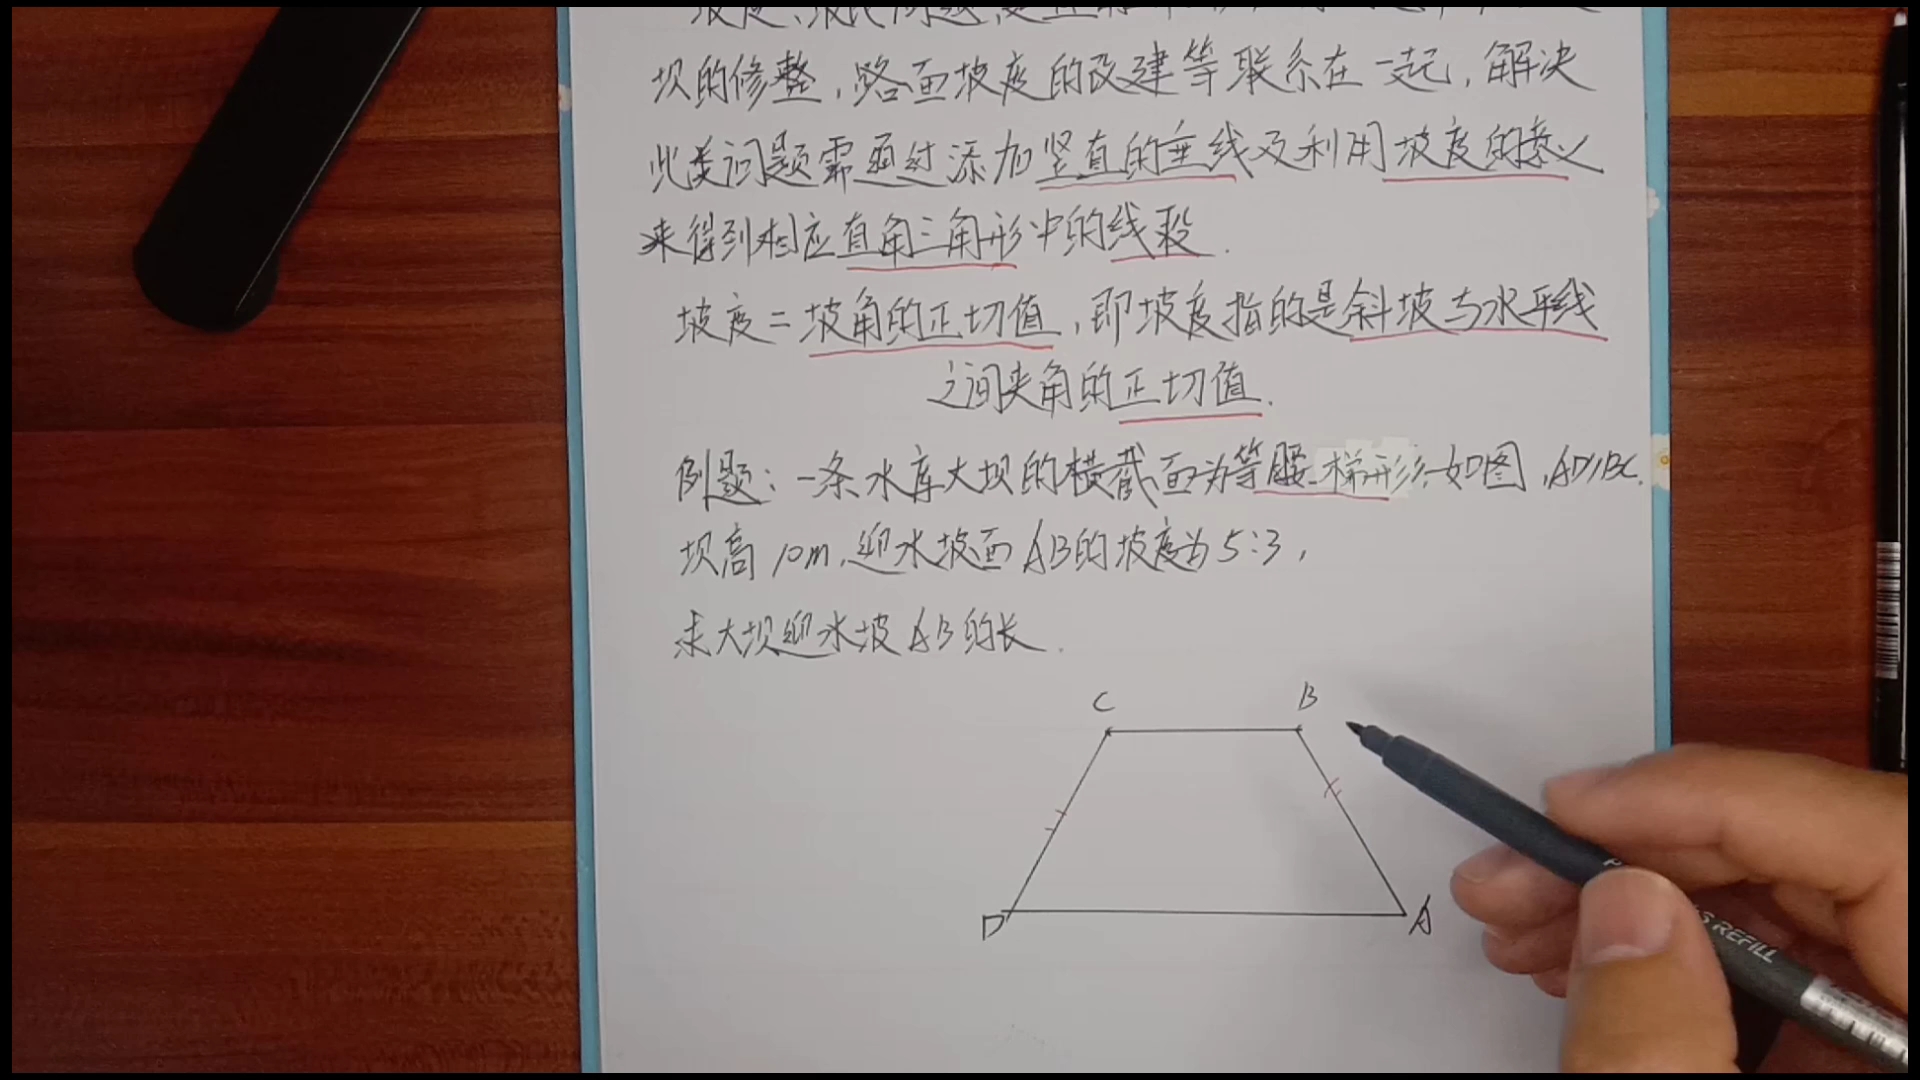 坝的修整,路面坡度的改建等联系在一起,解决
此类问题需通过添加竖直的垂线及利用坡度的意义
来得到相应直角三角形中的线段.
坡度=坡角的正切值,即坡度指的是斜坡与水平线
之间夹角的正切值.
例题:一条水库大坝的横截面为等腰梯形,如图,AD//BC.
坝高10m,迎水坡面AB的坡度为5:3,
求大坝迎水坡AB的长.
C B
D A
REFILL